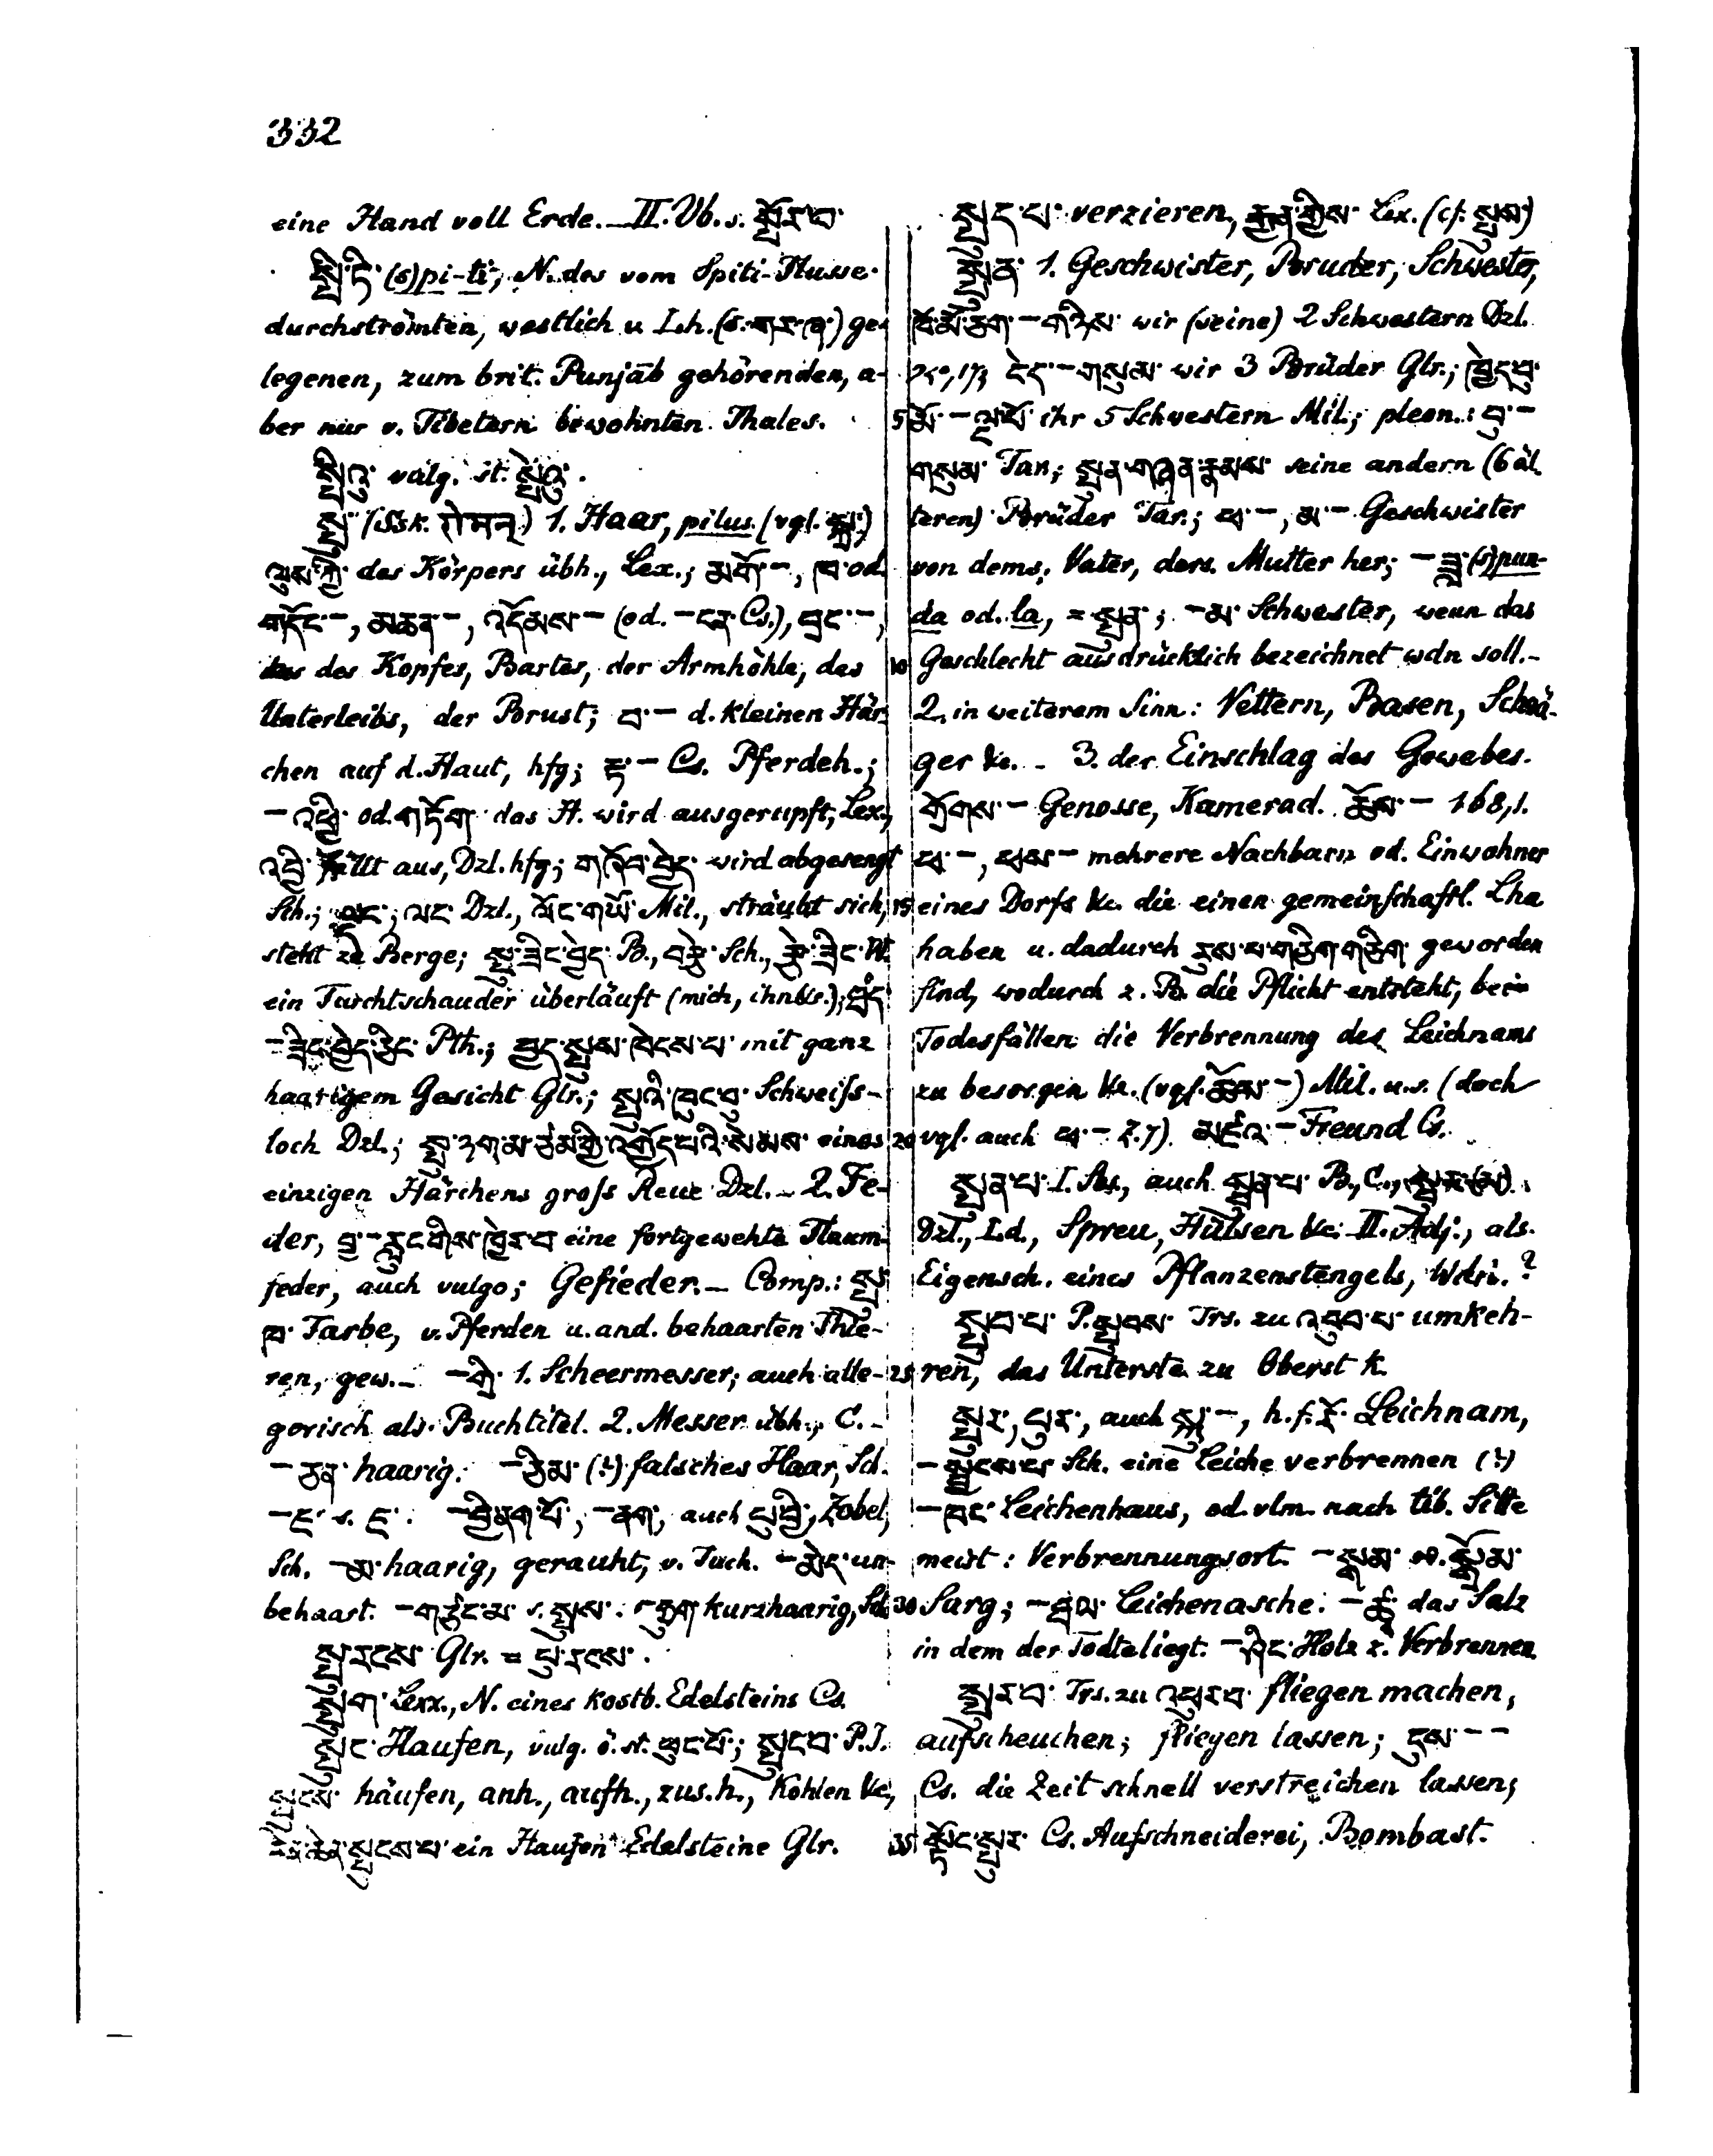 332
eine Hand voll Erde. — II. Vb. s. སྤོར་བ་
སྤི་ཏི་ (s)pi-ti, N. des vom Spiti-Flusse
durchströmten, westlich u Lh. (s. གར་ཞ་) ge-
legenen, zum brit. Punjāb gehörenden, a-
ber nur v. Tibetern bewohnten Thales.
སྤིའུ་ vulg. st. སྤེའུ་.
སྤུ་ (Ssk. रोमन्) 1. Haar, pilus (vgl. སྐྲ་)
ལུས་ཀྱི་ des Körpers übh., Lex.; མགོ་ —, ཁ་ od.
གདོང་ —, མཆན་ —, འདོམས་ — (od. — ངན་ Cs.), བྲང་ —,
des Kopfes, Bartes, der Armhöhle, des
Unterleibs, der Brust; བ་ — d. kleinen Här-
chen auf d. Haut, hfg; རྟ་ — Cs. Pferdeh.;
— འཕྱི་ od. གཏོག་ das H. wird ausgerupft, Lex.,
འབྱི་ fällt aus, Dzl. hfg; གཞོབ་བྱེད་ wird abgesengt
Sch.; ལྡང་, ལང་ Dzl., ལོང་གཡོ་ Mil., sträubt sich,
steht zu Berge; སྤུ་ཟིང་བྱེད་ B., Sch.,
ein Furchtschauder überläuft (mich, ihn &c.);
— ཟིང་བྱེད་ཅིང་ Pth.; བྱད་སྤུས་ཁེངས་པ་ mit ganz
haarigem Gesicht Glr.; སྤུའི་ཁུང་བུ་ Schweiss-
loch Dzl.; སྤུ་ཉག་མ་ཙམ་གྱི་འགྱོད་པའི་སེམས་ eines
einzigen Härchens gross Reue Dzl. — 2. Fe-
der, བྱ་ — རླུང་གིས་ཁྱེར་བ་ eine fortgewehte Flaum-
feder, auch vulgo; Gefieder. — Comp.: སྤུ་
ཁ་ Farbe, v. Pferden u. and. behaarten Thie-
ren, gew. — — གྲི་ 1. Scheermesser; auch alle-
gorisch als Buchtitel. 2. Messer übh., C. —
— ཅན་ haarig. — ཚིམ་ (?) falsches Haar, Sch.
— རྫ་ s. རྫ་. — བྱི་ནག་པོ་, — ནག་, auch བྱི་, Zobel,
Sch. — མ་ haarig, gerauht, v. Tuch. — མེད་ un-
behaart. — གཙང་མ་ s. སྤུས་. — ཐུག་ kurzhaarig, Sch.
སྤུ་རངས་ Glr. = པུ་རངས་.
སྤུག་ Lexx., N. eines kostb. Edelsteins Cs.
སྤུང་ Haufen, vulg. ö. st. ཕུང་པོ་; སྤུང་བ་ P.I.
སྤུངས་ häufen, anh., aufh., zus.h., Kohlen &c,
རིན་ཆེན་སྤུངས་པ་ ein Haufen Edelsteine Glr.
སྤུད་པ་ verzieren, རྒྱན་གྱིས་ Lex. (cf. སྤྲས་)
སྤུན་ 1. Geschwister, Bruder, Schwester,
ཁོ་མོ་ཅག་ — གཉིས་ wir (seine) 2 Schwestern Dzl.
༢༤༠, 17; ངེད་ — གསུམ་ wir 3 Brüder Glr.; ཁྱེད་བུ་
5 མོ་ — ལྔ་པོ་ ihr 5 Schwestern Mil.; pleon.: བུ་ —
གསུམ་ Tar.; སྤུན་གཞན་རྣམས་ seine andern (6 äl-
teren) Brüder Tar.; ཕ་ —, མ་ — Geschwister
von dems. Vater, ders. Mutter her; — ཟླ་ (s)pun-
da od. la, = སྤུན་; — མ་ Schwester, wenn das
10 Geschlecht ausdrücklich bezeichnet wdn soll. —
2. in weiterem Sinn: Vettern, Basen, Schwä-
ger &c. — 3. der Einschlag des Gewebes.
གྲོགས་ — Genosse, Kamerad. ཆོས་ — 168,1.
ཕ་ —, ཕས་ — mehrere Nachbarn od. Einwohner
15 eines Dorfs &c. die einen gemeinschaftl. Lha
haben u. dadurch རུས་པ་གཅིག་གཅིག་ geworden
sind, wodurch z. B. die Pflicht entsteht, bei
Todesfällen die Verbrennung des Leichnams
zu besorgen &c. (vgl. ཆོས་ —) Mil. u.s. (doch
20 vgl. auch ཕ་ — Z. 7). མཛའ་ — Freund Cs.
སྤུན་པ་ I. Sbs., auch སྦུན་པ་ B., C.,
Dzl., Ld., Spreu, Hülsen &c. II. Adj., als
Eigensch. eines Pflanzenstengels, Wdn. ?
སྤུབ་པ་ P. སྤུབས་ Trs. zu འབུབ་པ་ umkeh-
25 ren, das Unterste zu Oberst k.
སྤུར་, པུར་, auch སྐུ་ —, h. f. རོ་ Leichnam,
— སྦྱངས་པ་ Sch. eine Leiche verbrennen (?)
— ཁང་ Leichenhaus, od. vlm. nach tib. Sitte
meist: Verbrennungsort. — སྒམ་ od. སྒྲོམ་
30 Sarg; — ཐལ་ Leichenasche. — ཚྭ་ das Salz
in dem der Todte liegt. — ཤིང་ Holz z. Verbrennen
སྤུར་བ་ Trs. zu འཕུར་བ་ fliegen machen,
aufscheuchen; fliegen lassen; དུས་ — —
Cs. die Zeit schnell verstreichen lassen;
35 སྟོང་སྤུར་ Cs. Aufschneiderei, Bombast.